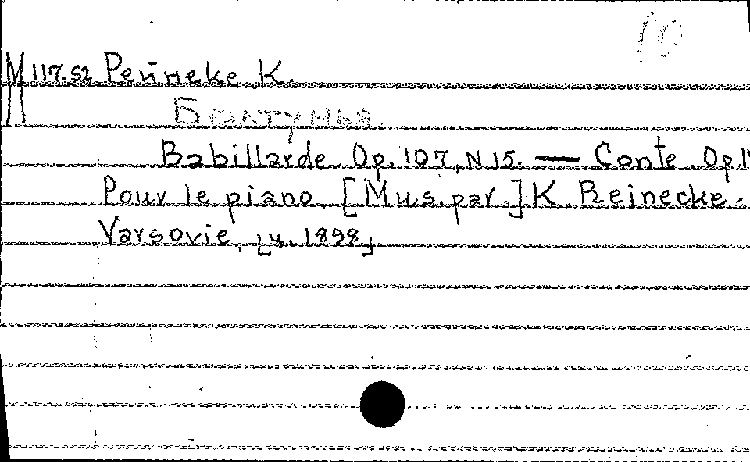 10
M 117.52 Рейнеке К.
Болтунья.
Babillarde. Op. 107, N 15. — Conte. Op 1
Pour le piano. [Mus. par.] K. Reinecke.
Varsovie, [ц. 1898]